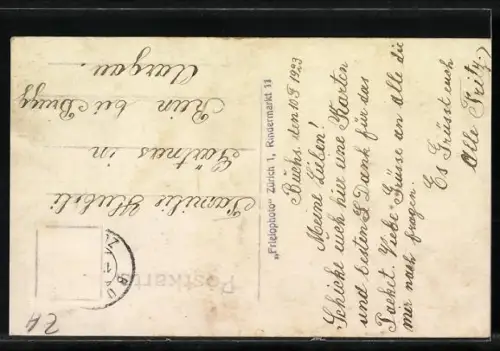 Buchs. den 10 F 1923
Meine Lieben!
Schicke euch hir eine Karten
und besten Dank für das
Packet. Liebe Grüsse an alle die
mir nach fragen.
Es Grüsst euch
Otto Fritz.
„Frigiophoto“ Zürich 1, Rindermarkt 11
Postkarte
Familie Hubeli
Gärtners in
Rein bei Brugg
Aargau.
ZH